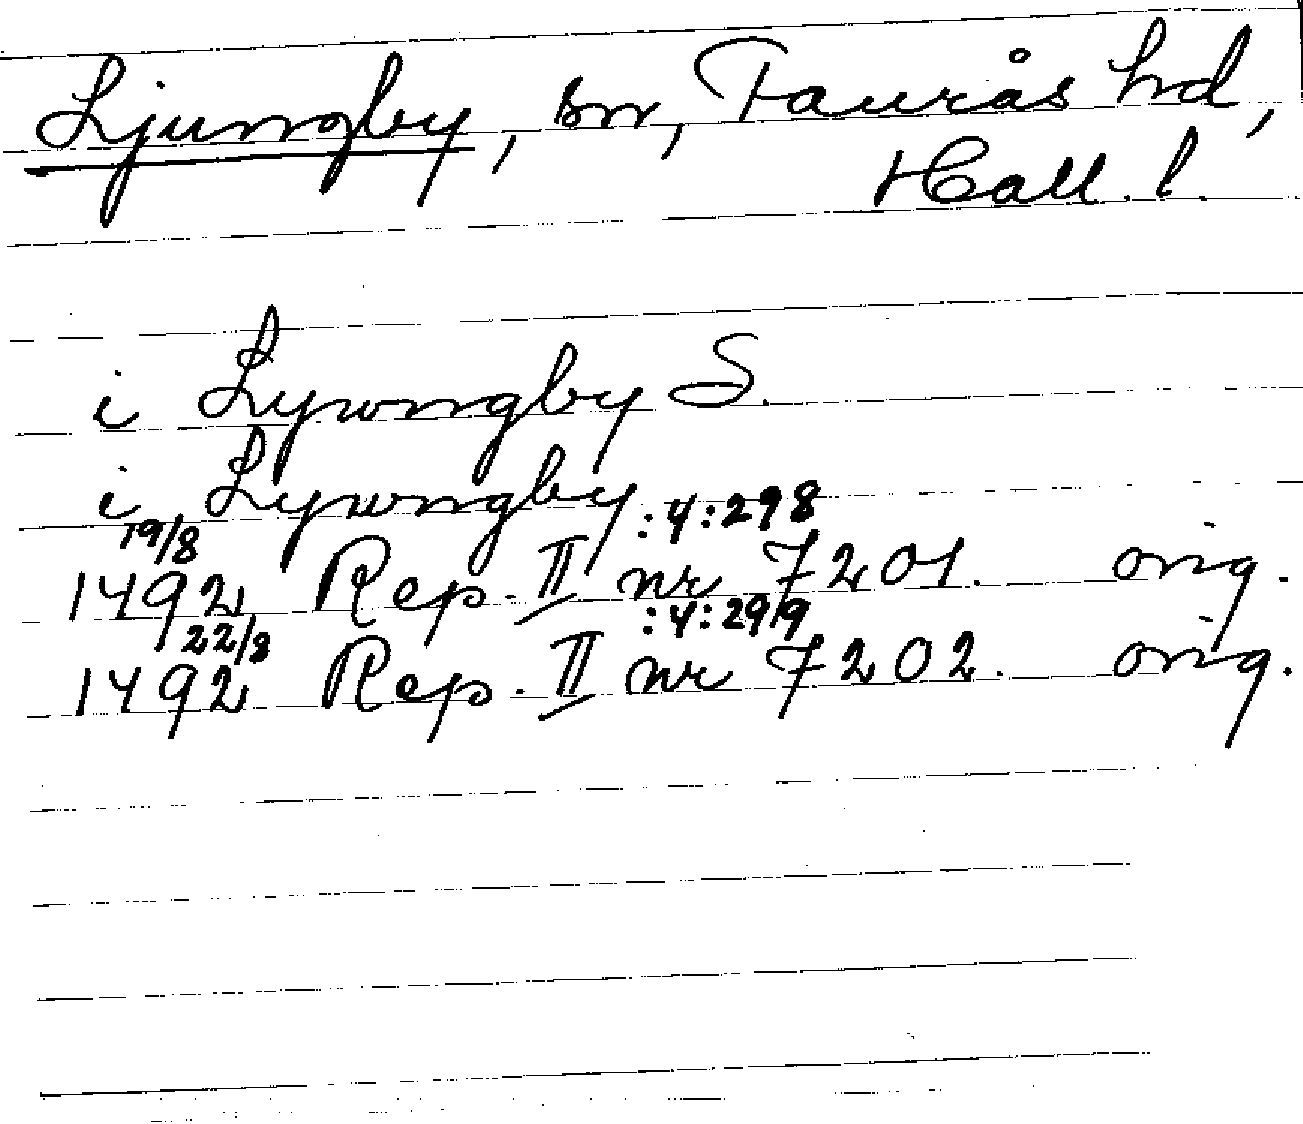 Ljungby, sn, Faurås hd,
Hall. l.
i Lywngby S.
i Lywngby
19/8 :4:298
1492 Rep. II nr 7201. orig.
22/8 :4:299
1492 Rep. II nr 7202. orig.